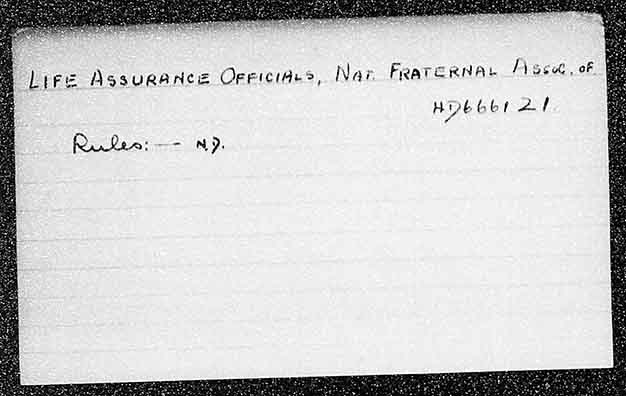 LIFE ASSURANCE OFFICIALS, NAT. FRATERNAL ASSOC. OF
HD6661 21
Rules: — N.D.